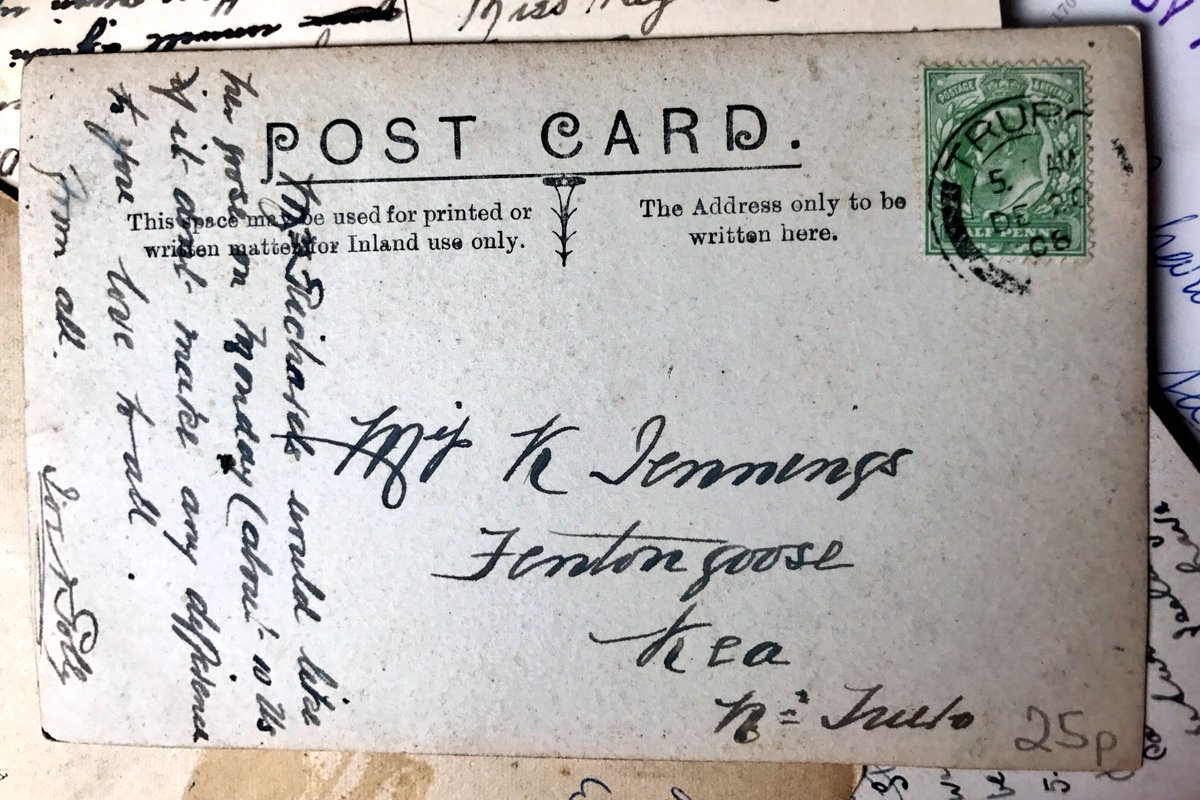 POST CARD.
This space may be used for printed or
written matter for Inland use only.
The Address only to be
written here.
POSTAGE REVENUE
HALF PENNY
TRURO
5. AM
DE 20
06
Mrs Richards would like
her goose on Monday (about 10 lbs
if it dont make any difference
to you love to all.
from all.
Miss K Jennings
Fentongoose
Kea
Nr Truro
25p
Miss